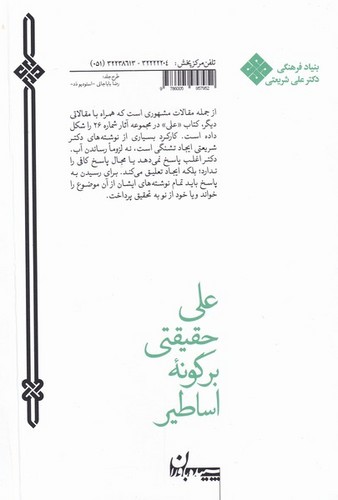 بنیاد فرهنگی
دکتر علی شریعتی
تلفن مرکز پخش: ۳۲۲۲۲۲۰۴ - ۳۲۲۳۸۶۱۳ (۰۵۱)
طرح جلد:
از جمله مقالات مشهوری است که همراه با مقالاتی
دیگر، کتاب «علی» در مجموعه آثار شماره ۲۶ را شکل
داده است. کارکرد بسیاری از نوشته‌های دکتر
شریعتی ایجاد تشنگی است، نه لزوماً رساندن آب.
دکتر اغلب پاسخ نمی‌دهد یا مجال پاسخ کافی را
ندارد؛ بلکه ایجاد تعلیق می‌کند. برای رسیدن به
پاسخ باید تمام نوشته‌های ایشان از آن موضوع را
خواند و یا خود از نو به تحقیق پرداخت.
علی
حقیقتی
بر گونهٔ
اساطیر
سپیده باوران